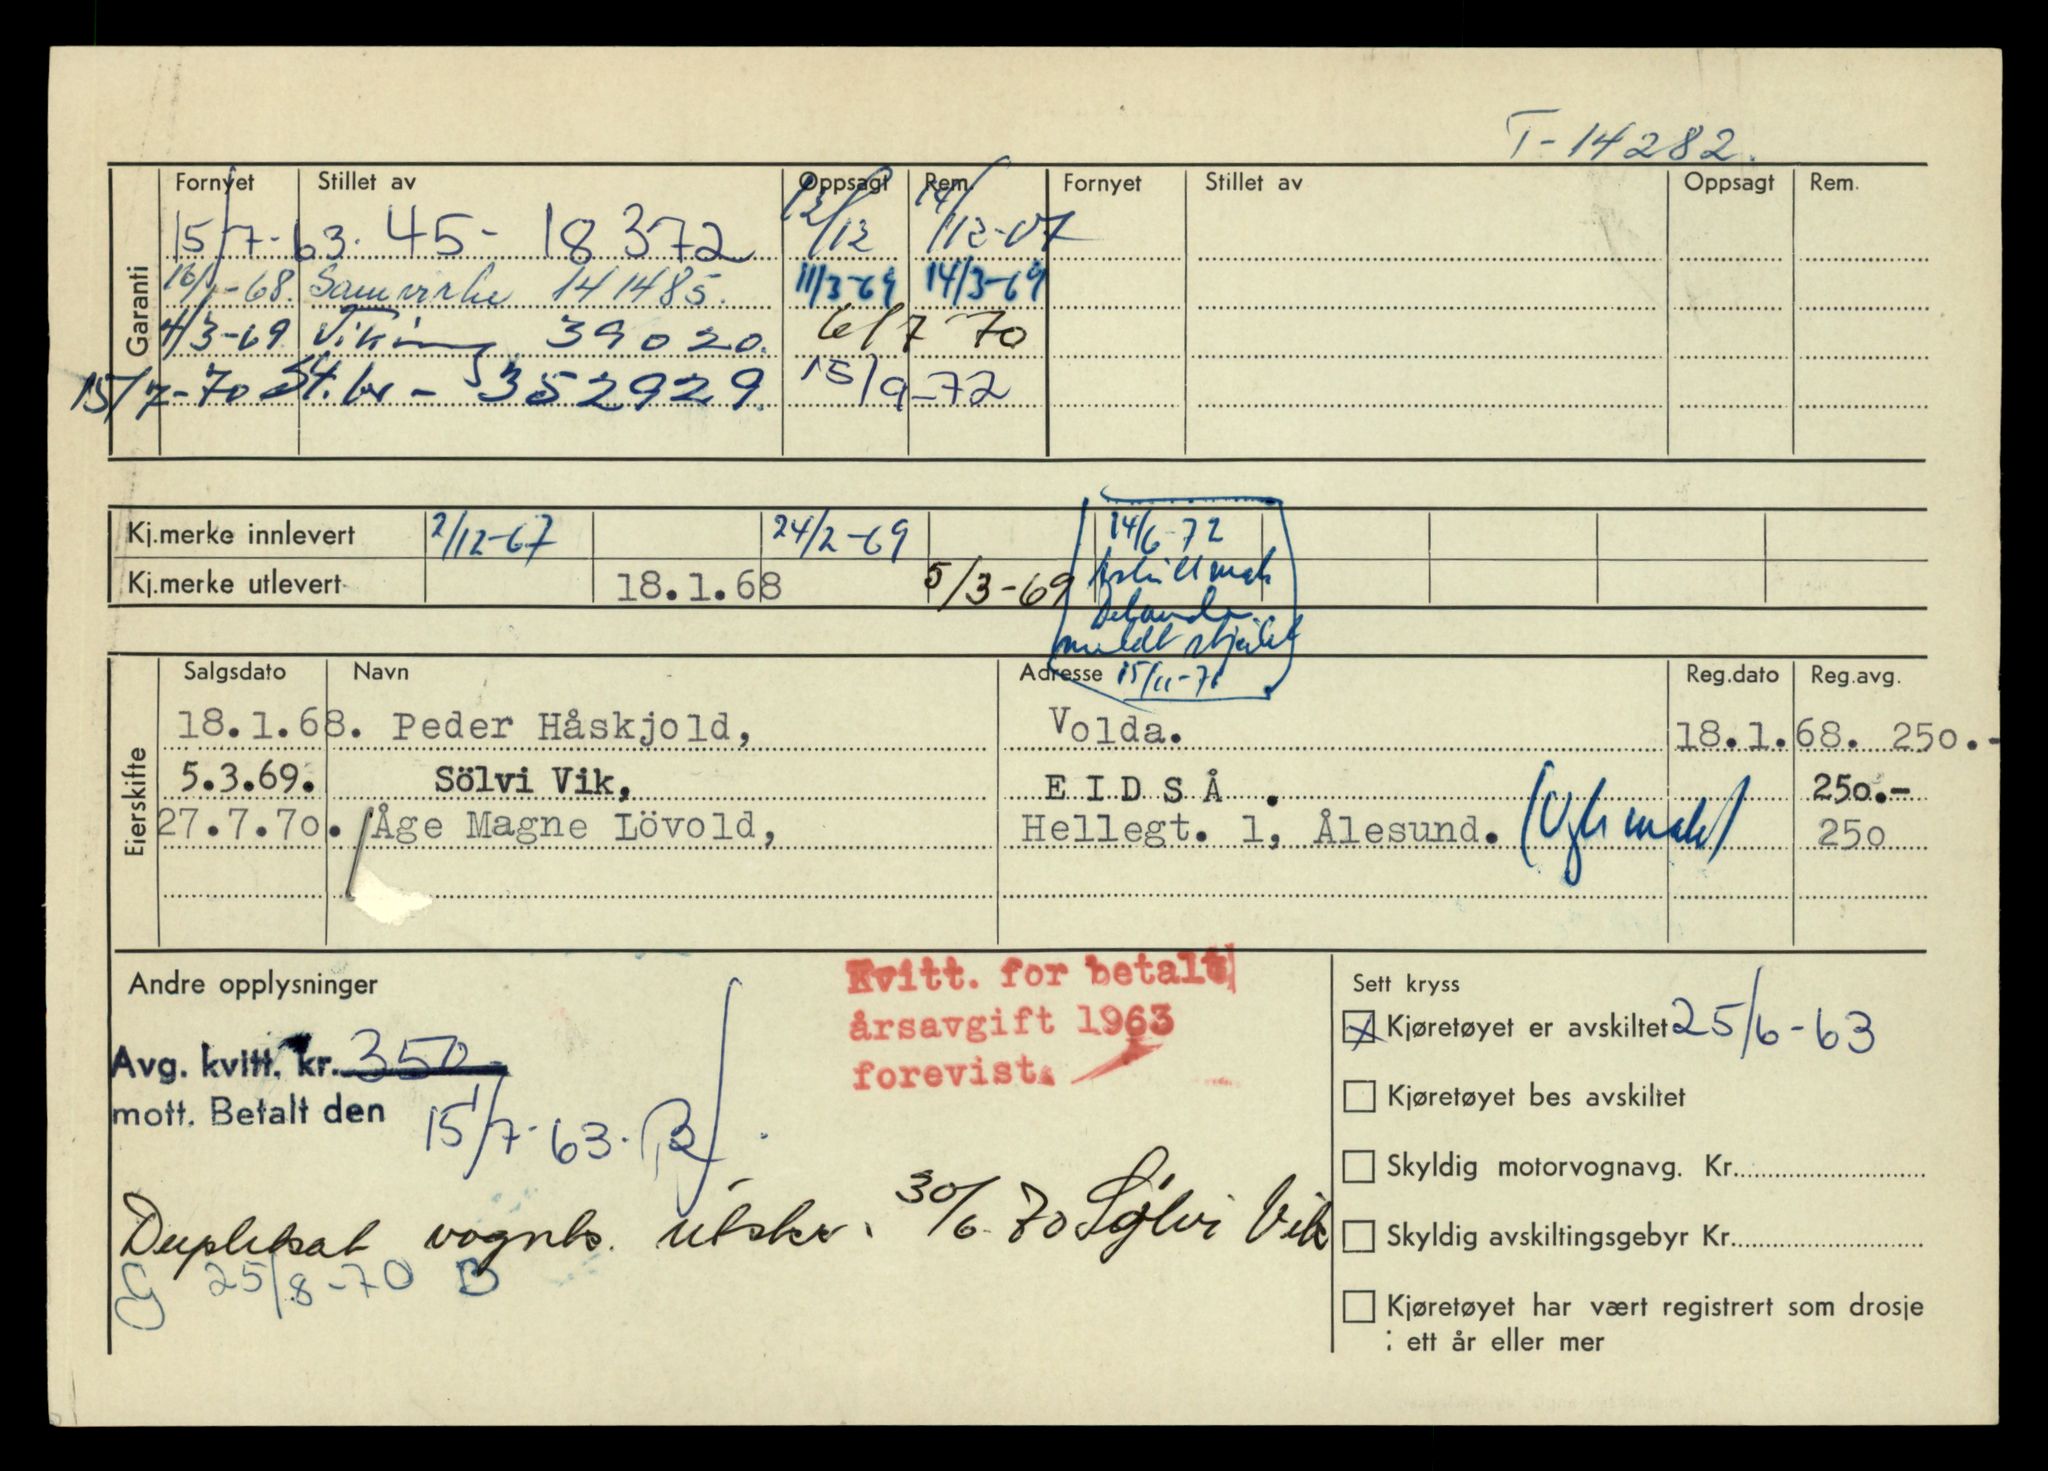 T-14282.
Garanti
Fornyet Stillet av Oppsagt Rem. Fornyet Stillet av Oppsagt Rem.
15/7-63. 45- 18372 12/12 14/12-67
16/1-68. Samvirke 141485. 11/3-69 14/3-69
4/3-69 Viking 39020. 6/7 70
15/7-70 St.br - 352929. 15/9-72
Kj.merke innlevert 2/12-67 24/2-69 14/6-72
Kj.merke utlevert 18.1.68 5/3-69
meldt stjålet
15/11-71
Eierskifte
Salgsdato Navn Adresse Reg.dato Reg.avg.
18.1.68. Peder Håskjold, Volda. 18.1.68. 250.-
5.3.69. Sölvi Vik, EIDSÅ . 250.-
27.7.70. Åge Magne Lövold, Hellegt. 1, Ålesund. 250
Andre opplysninger
Avg. kvitt. kr. 350
mott. Betalt den 15/7-63. B
Kvitt. for betalt
årsavgift 1963
forevist.
Duplikat vognk. utskr. 30/6-70 Sølvi Vik
G 25/8-70 B
Sett kryss
Kjøretøyet er avskiltet 25/6-63
Kjøretøyet bes avskiltet
Skyldig motorvognavg. Kr.
Skyldig avskiltingsgebyr Kr.
Kjøretøyet har vært registrert som drosje
i ett år eller mer